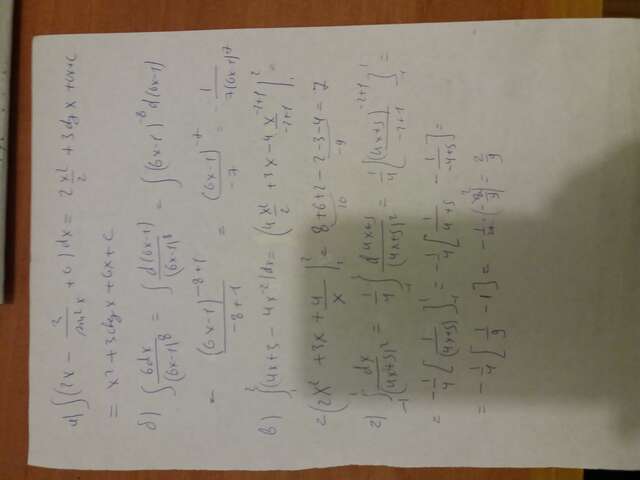 а) ∫(2x - 3/sin²x + 6)dx = 2 x²/2 + 3ctgx + 6x + c
= x² + 3ctgx + 6x + c
б) ∫ 6dx/(6x-1)⁸ = ∫ d(6x-1)/(6x-1)⁸ = ∫(6x-1)⁻⁸ d(6x-1)
= (6x-1)⁻⁸⁺¹/-8+1 = (6x-1)⁻⁷/-7 = -1/7(6x-1)⁷
в) ∫₁²(4x+3-4x⁻²)dx = (4x²/2 + 3x - 4x⁻²⁺¹/-2+1)|₁² =
= (2x² + 3x + 4/x)|₁² = 8+6+2-2-3-4 = 7
10 -9
г) ∫₋₁¹ dx/(4x+5)² = 1/4 ∫₋₁¹ d4x+5/(4x+5)² = 1/4[(4x+5)⁻²⁺¹/-2+1]₋₁¹ =
= -1/4[1/(4x+5)]₋₁¹ = -1/4[1/4+5 - 1/-4+5] =
= -1/4[1/9 - 1] = -1/4·(-8/9) = 2/9